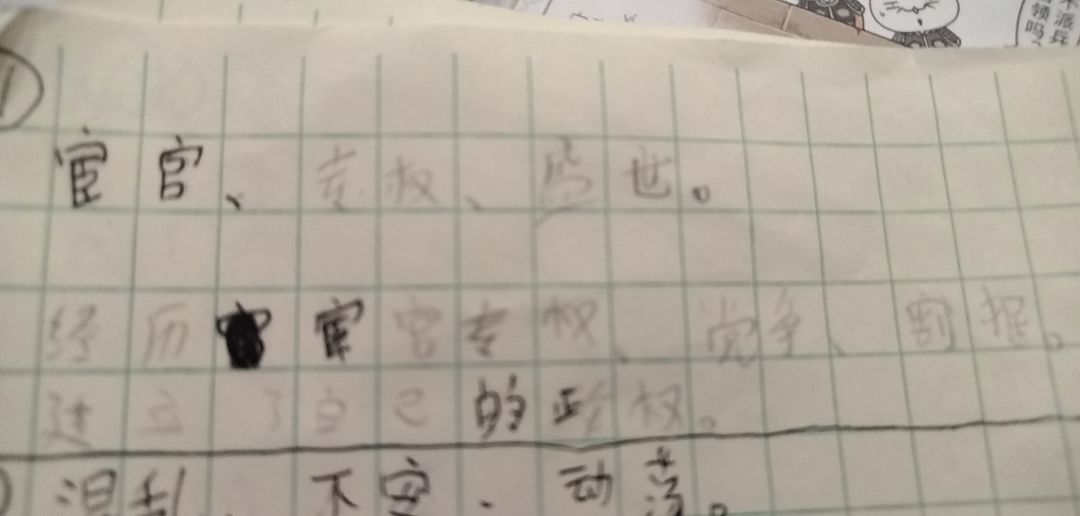 不派兵
领吗?
①
宦官、专权、盛世。
经历宦官专权、党争、割据。
建立了自己的政权。
混乱、不安、动荡。